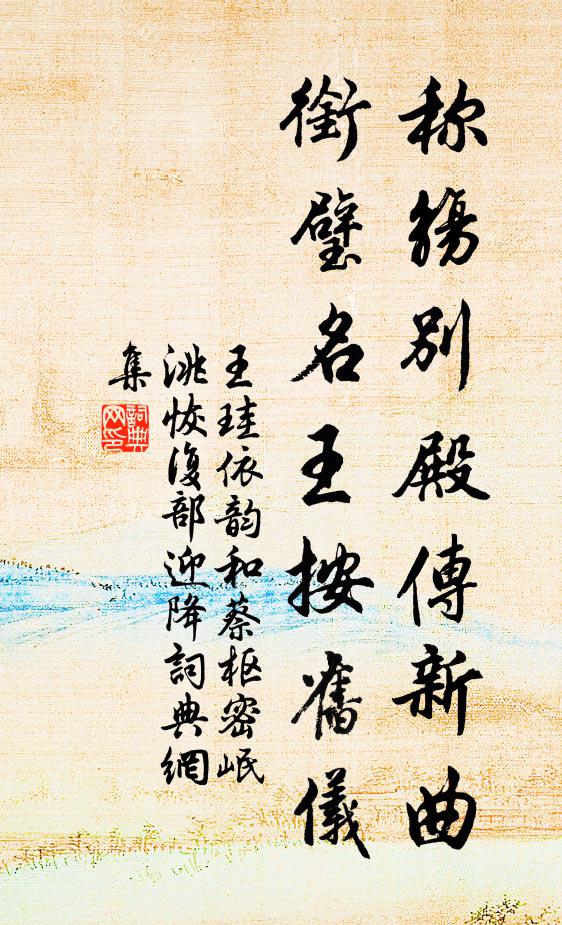 称觞別殿傳新曲
銜璧名王按舊儀
王珪依韵和蔡枢密岷
洮恢復部迎降詞典網
集
詞典
网印